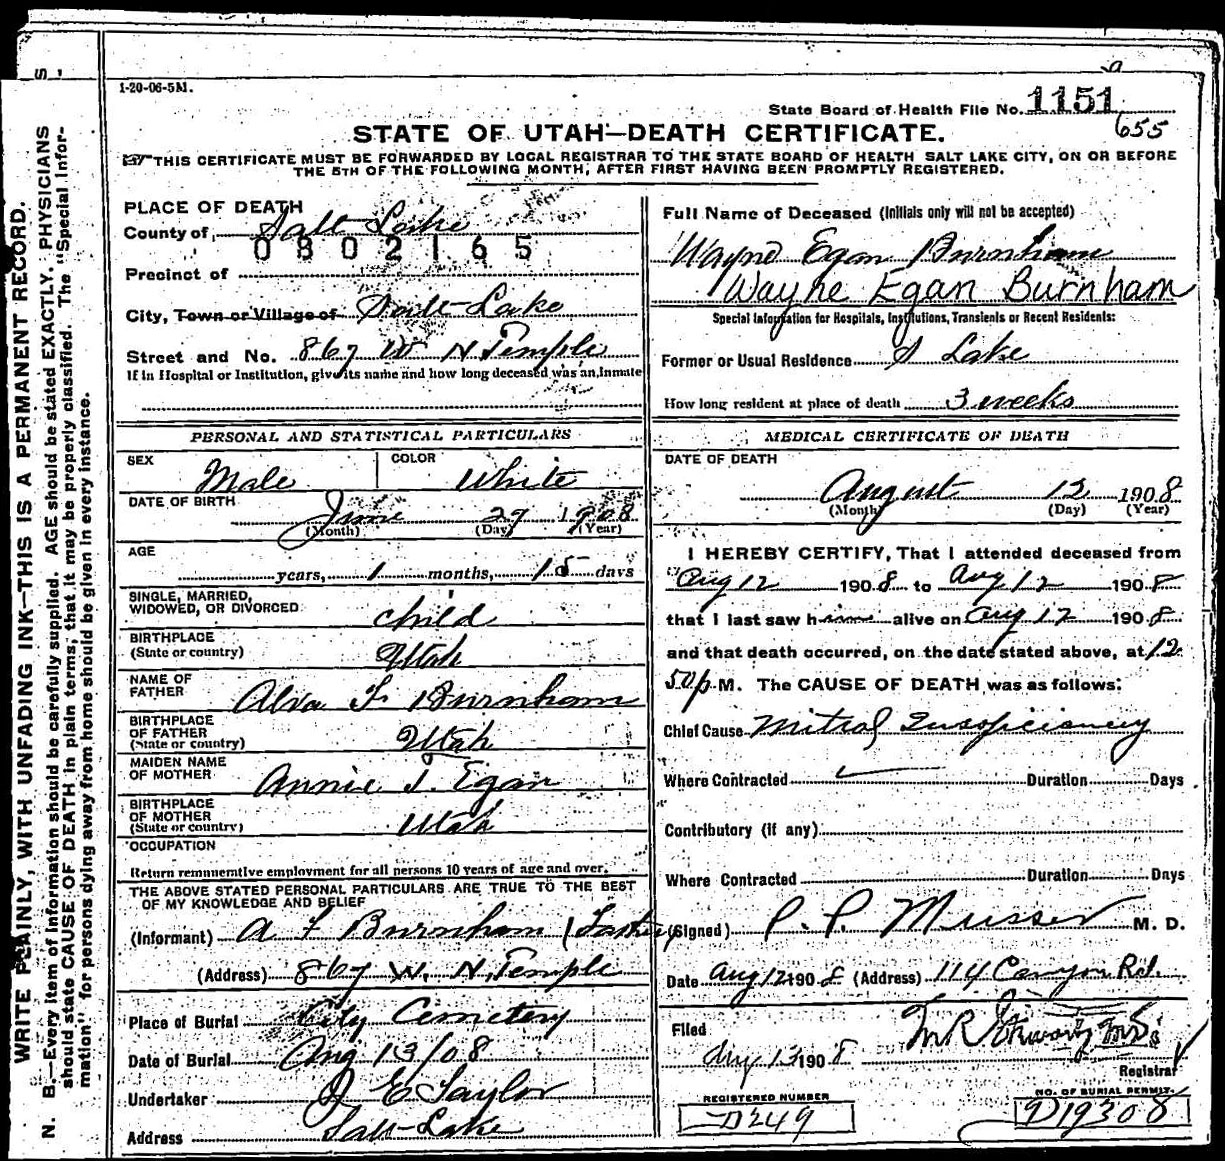 1-20-06-5M.
State Board of Health File No. 1151
655
STATE OF UTAH—DEATH CERTIFICATE.
☞THIS CERTIFICATE MUST BE FORWARDED BY LOCAL REGISTRAR TO THE STATE BOARD OF HEALTH SALT LAKE CITY, ON OR BEFORE
THE 5TH OF THE FOLLOWING MONTH, AFTER FIRST HAVING BEEN PROMPTLY REGISTERED.
PLACE OF DEATH
County of Salt Lake
0302165
Precinct of
City, Town or Village of Salt Lake
Street and No. 867 W N Temple
If in Hospital or Institution, give its name and how long deceased was an Inmate
Full Name of Deceased (Initials only will not be accepted)
Wayne Egan Burnham
Wayne Egan Burnham
Special Information for Hospitals, Institutions, Transients or Recent Residents:
Former or Usual Residence S Lake
How long resident at place of death 3 weeks
PERSONAL AND STATISTICAL PARTICULARS
SEX Male COLOR White
DATE OF BIRTH
June 29 1908
(Month) (Day) (Year)
AGE
years, 1 months, 15 days
SINGLE, MARRIED,
WIDOWED, OR DIVORCED child
BIRTHPLACE
(State or country) Utah
NAME OF
FATHER Alva F Burnham
BIRTHPLACE
OF FATHER
(State or country) Utah
MAIDEN NAME
OF MOTHER Annie I. Egan
BIRTHPLACE
OF MOTHER
(State or country) Utah
OCCUPATION
Return remunerative employment for all persons 10 years of age and over.
THE ABOVE STATED PERSONAL PARTICULARS ARE TRUE TO THE BEST
OF MY KNOWLEDGE AND BELIEF
(Informant) A F Burnham (Father)
(Address) 867 W. N. Temple
Place of Burial City Cemetery
Date of Burial Aug 13/08
Undertaker J E Taylor
Address Salt Lake
MEDICAL CERTIFICATE OF DEATH
DATE OF DEATH
August 12 1908
(Month) (Day) (Year)
I HEREBY CERTIFY, That I attended deceased from
Aug 12 1908 to Aug 12 1908
that I last saw him alive on Aug 12 1908
and that death occurred, on the date stated above, at 12
50 p M. The CAUSE OF DEATH was as follows:
Chief Cause Mitral Insuficiency
Where Contracted Duration Days
Contributory (if any)
Where Contracted Duration Days
(Signed) P. P. Musser M. D.
Date Aug 12 1908 (Address) 114 Canyon Rd.
Filed
Aug 13 1908
Registrar
REGISTERED NUMBER
D249
NO. OF BURIAL PERMIT
D19308
WRITE PLAINLY, WITH UNFADING INK—THIS IS A PERMANENT RECORD.
N. B.—Every item of information should be carefully supplied. AGE should be stated EXACTLY. PHYSICIANS
should state CAUSE OF DEATH in plain terms, that it may be properly classified. The "Special Infor-
mation" for persons dying away from home should be given in every instance.